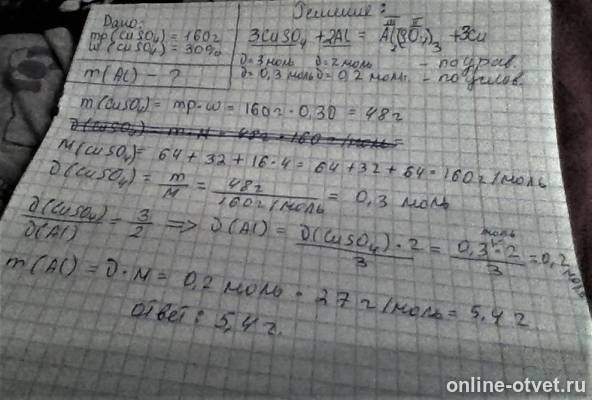 Дано:
mр(CuSO₄) = 160 г
w(CuSO₄) = 30%
m(Al) - ?
Решение:
III II
3CuSO₄ + 2Al = Al₂(SO₄)₃ + 3Cu
ϑ = 3 моль ϑ = 2 моль - по урав.
ϑ = 0,3 моль ϑ = 0,2 моль - по услов.
m(CuSO₄) = mр · w = 160 г · 0,30 = 48 г
ϑ(CuSO₄) = m · M = 48 г · 160 г/моль =
M(CuSO₄) = 64 + 32 + 16 · 4 = 64 + 32 + 64 = 160 г/моль
ϑ(CuSO₄) = m/M = 48 г/160 г/моль = 0,3 моль
ϑ(CuSO₄)/ϑ(Al) = 3/2 => ϑ(Al) = ϑ(CuSO₄) · 2/3 = 0,3 моль · 2/3 = 0,2 моль
m(Al) = ϑ · M = 0,2 моль · 27 г/моль = 5,4 г
Ответ: 5,4 г.
online-otvet.ru